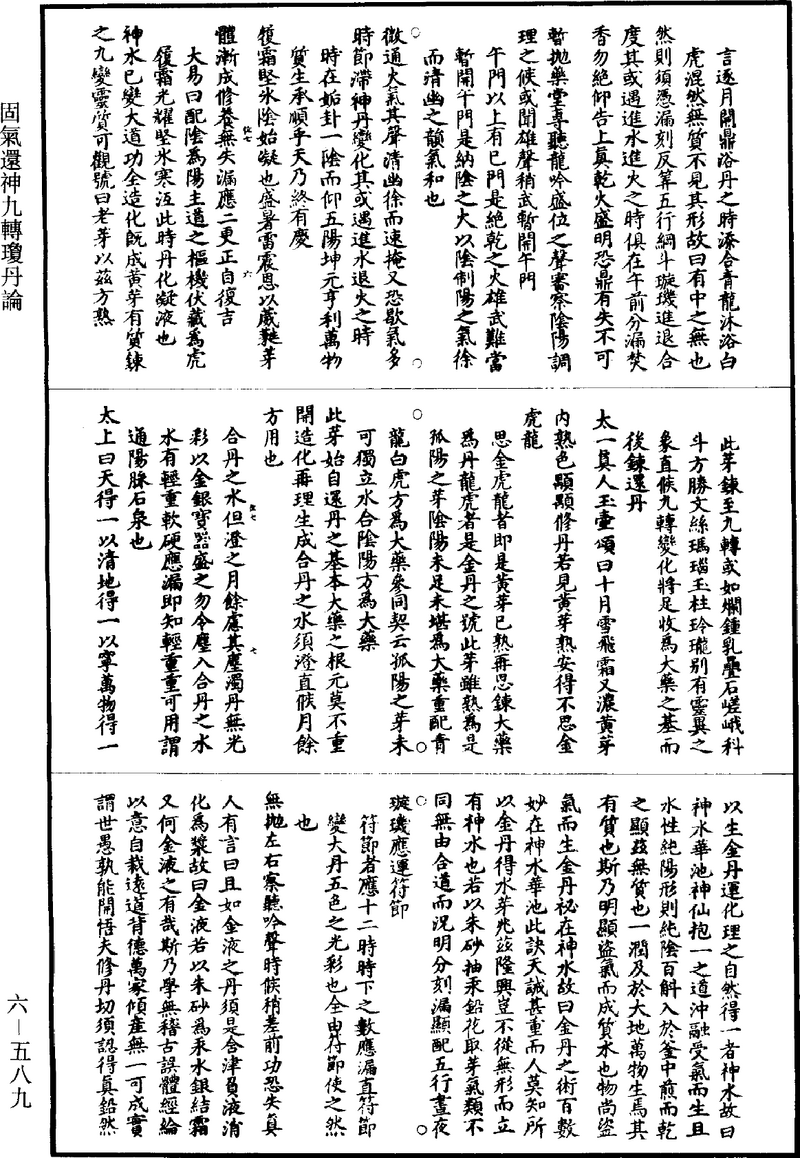 固氣還神九轉瓊丹論
言逐月開鼎浴丹之時添合青龍沐浴白
虎混然無質不見其形故曰有中之無也
然則須憑漏刻反筭五行綱斗璇璣進退合
度其或遇進水進火之時俱在午前分漏焚
香勿絕仰告上真乾火盛明恐鼎有失不可
暫拋藥堂專聽龍吟盛位之聲審察陰陽調
理之候或聞雄聲稍武暫開午門
午門以上有巳門是絕乾之火雄武難當
暫開午門是納陰之火以陰制陽之氣徐
而清幽之韻氣和也
微通火氣其聲清幽徐而速掩又恐歇氣多
時節滯神丹變化其或遇進水退火之時
時在姤卦一陰而仰五陽坤元亨利萬物
質生承順乎天乃終有慶
履霜堅氷陰始凝也盛暑雷震思以葳蕤芽
體漸成修養無失漏應二更正自復吉
大易曰配陰為陽主道之樞機伏藏為虎
履霜光耀堅氷寒沍此時丹化凝液也
神水巳變大道功全造化旣成黃芽有質鍊
之九變靈質可觀號曰老芽以茲方熟
此芽鍊至九轉或如爛鍾乳疊石嵯峨科
斗方勝文絲瑪瑙玉柱玲瓏別有靈異之
象直候九轉變化將足收為大藥之基而
後鍊還丹
太一真人玉壺頌曰十月雪飛霜又濃黃芽
內熟色顯顯修丹若見黃芽熟安得不思金
虎龍
思金虎龍者即是黃芽巳熟再思鍊大藥
為丹龍虎者是金丹之號此芽雖熟為是
孤陽之芽陰陽未足未堪為大藥重配青
龍白虎方為大藥參同契云孤陽之芽未
可獨立水合陰陽方為大藥
此芽始自還丹之基本大藥之根元莫不重
開造化再理生成合丹之水須澄直候月餘
方用也
合丹之水但澄之月餘慮其塵濁丹無光
彩以金銀寶器盛之勿令塵入合丹之水
水有輕重軟硬應漏即知輕重重可用謂
通陽脉石泉也
太上曰天得一以清地得一以寧萬物得一
以生金丹運化理之自然得一者神水故曰
神水華池神仙抱一之道沖融受氣而生且
水性純陽形則純陰百斛入於釜中煎而乾
之顯茲無質也一潤及於大地萬物生焉其
有質也斯乃明顯盜氣而成質水也物尚盜
氣而生金丹祕在神水故曰金丹之術百數
妙在神水華池此訣天誡甚重而人莫知所
以金丹得水芽兆茲隆興豈不從無形而立
有神水也若以朱砂抽汞鉛花取芽氣類不
同無由合道而況明分刻漏顯配五行晝夜
璇璣應運符節
符節者應十二時時下之數應漏直符節
變大丹五色之光彩也全由符節使之然
也
無拋左右察聽吟聲時候稍差前功恐失真
人有言曰且如金液之丹須是含津㗖液消
化為漿故曰金液若以朱砂為汞水銀結霜
又何金液之有哉斯乃學無稽古誤體經綸
以意自裁遠道背德萬家傾產無一可成實
謂世愚孰能開悟夫修丹切須認得真鉛然
六—五八九